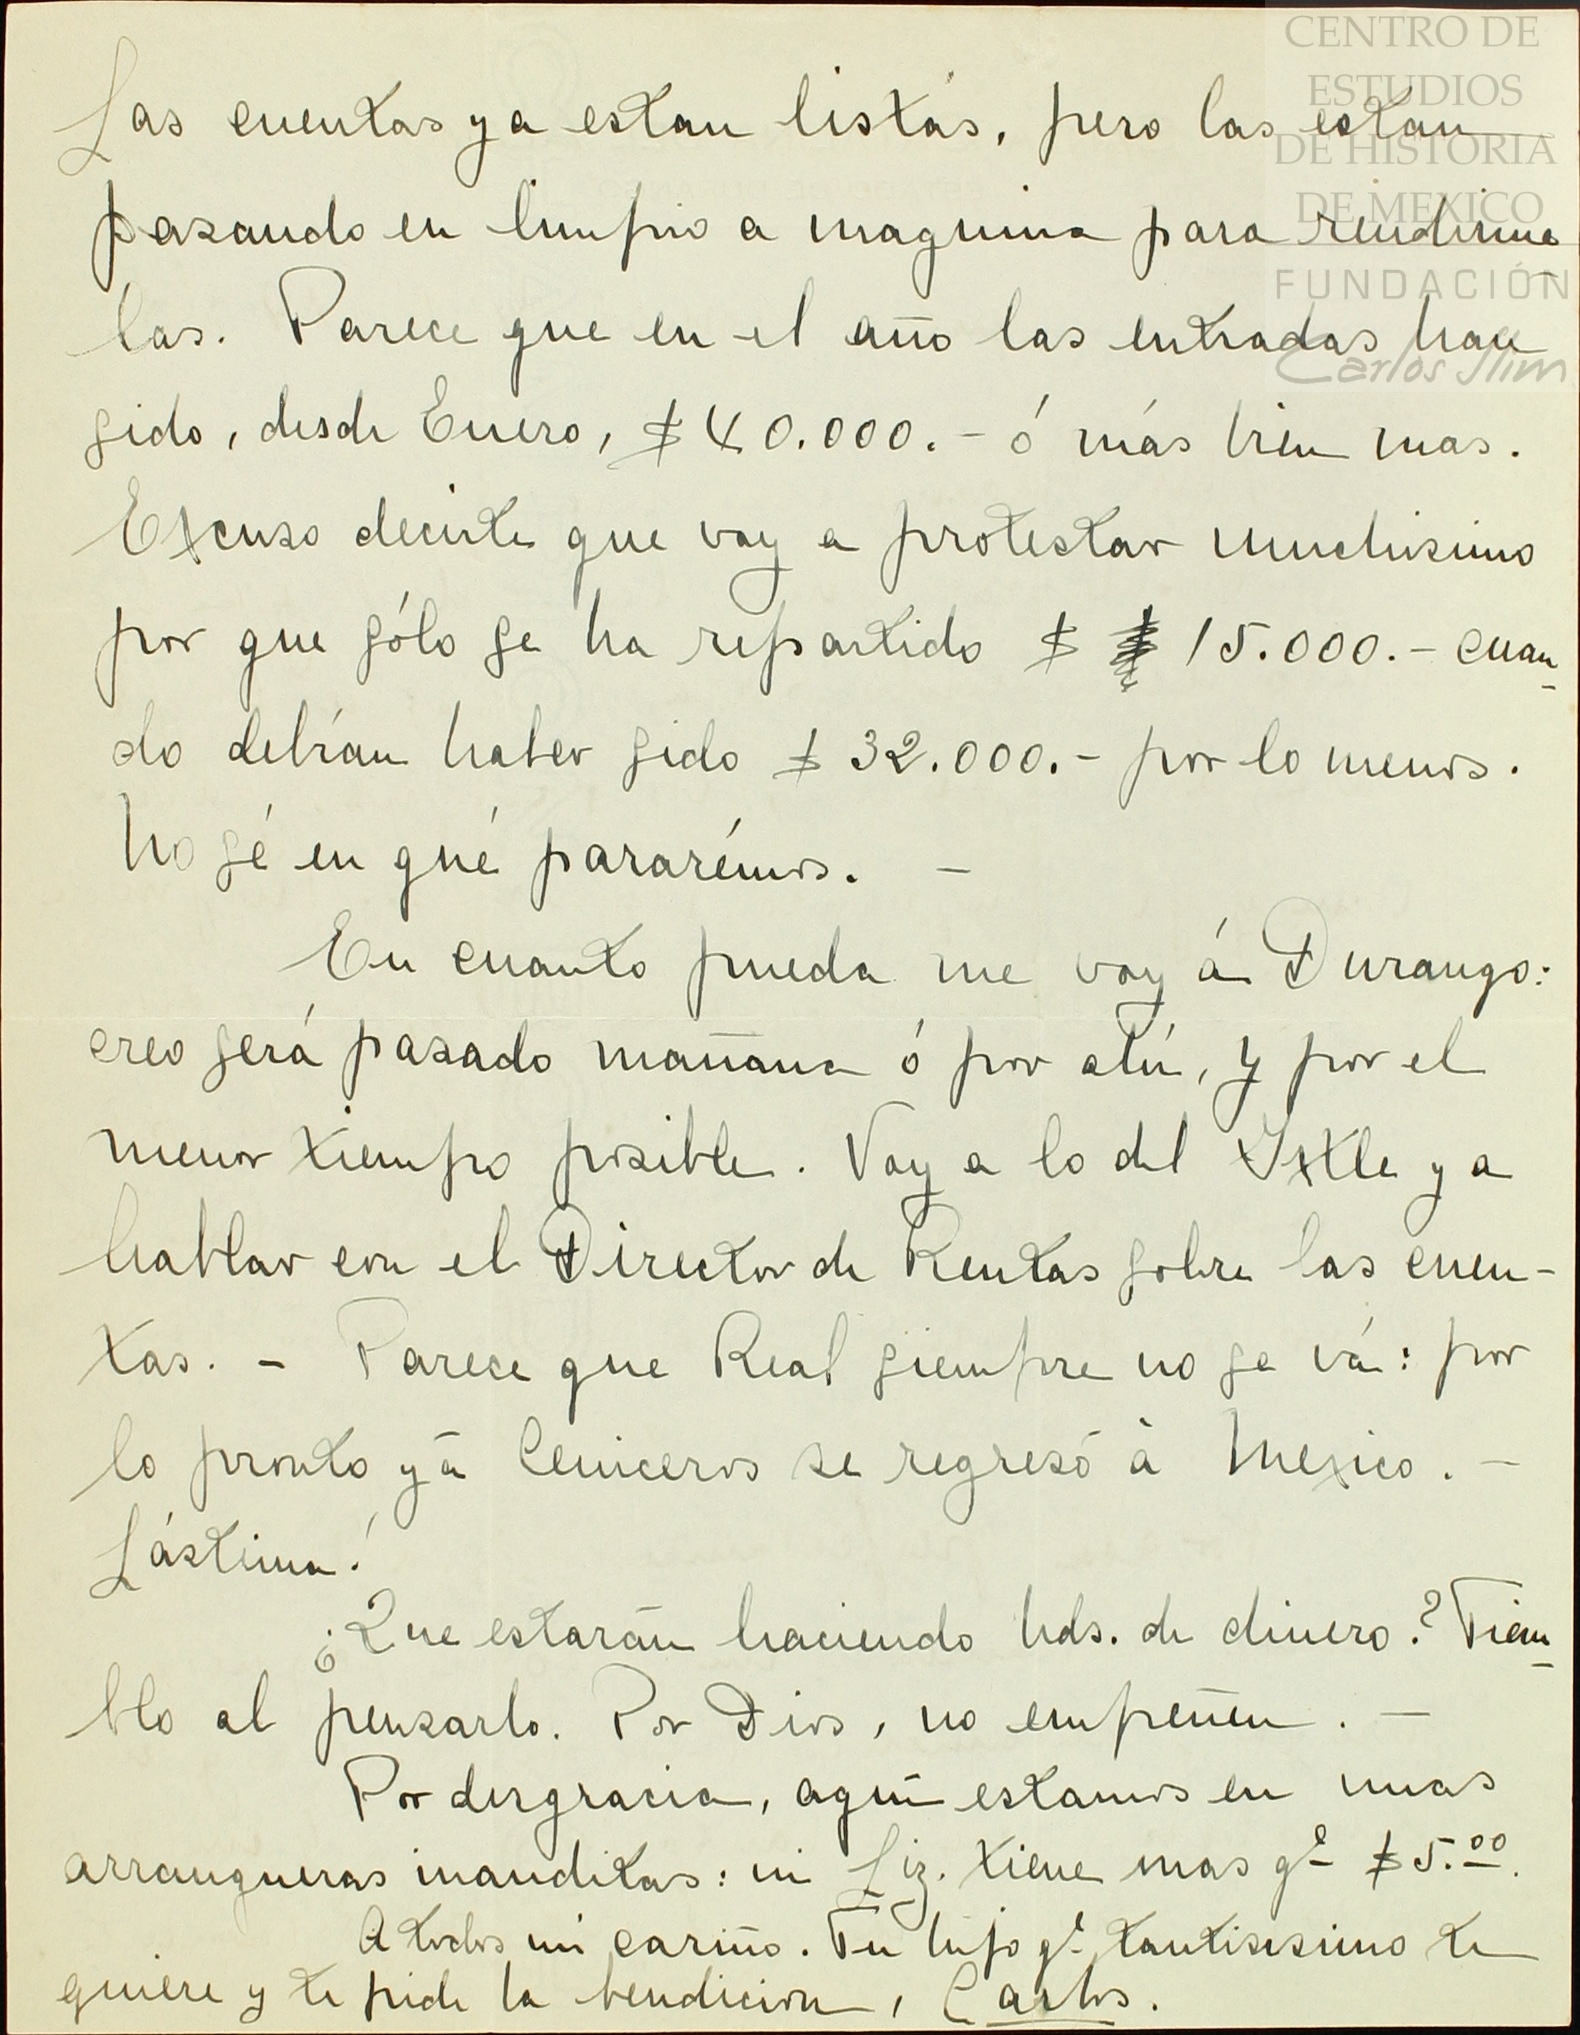 CENTRO DE
ESTUDIOS
DE HISTORIA
DE MEXICO
FUNDACIÓN
Carlos Slim
Las cuentas ya estan listas, pero las estan
pasando en limpio a maquina para rendirme
las. Parece que en el año las entradas han
sido, desde Enero, $40.000.- ó más bien mas.
Excuso decirte que voy a protestar muchisimo
por que sólo se ha repartido $ 15.000.- cuan-
do debían haber sido $ 32.000.- por lo menos.
No sé en qué pararémos. -
En cuanto pueda me voy á Durango:
creo será pasado mañana ó por ahí, y por el
menor tiempo posible. Voy a lo del Ixtle y a
hablar con el Director de Rentas sobre las cuen-
tas. - Parece que Real siempre no se vá: por
lo pronto yá Ceniceros se regresó á Mexico. -
Lástima!
¿Que estarán haciendo Uds. de dinero? Tiem-
blo al pensarlo. Por Dios, no empeñen. -
Por desgracia, aquí estamos en unas
arrangueras inauditas: ni Liz. tiene mas qe $5.00.
A todos mi cariño. Tu hijo qe tantisisimo te
quiere y te pide la bendicion, Carlos.